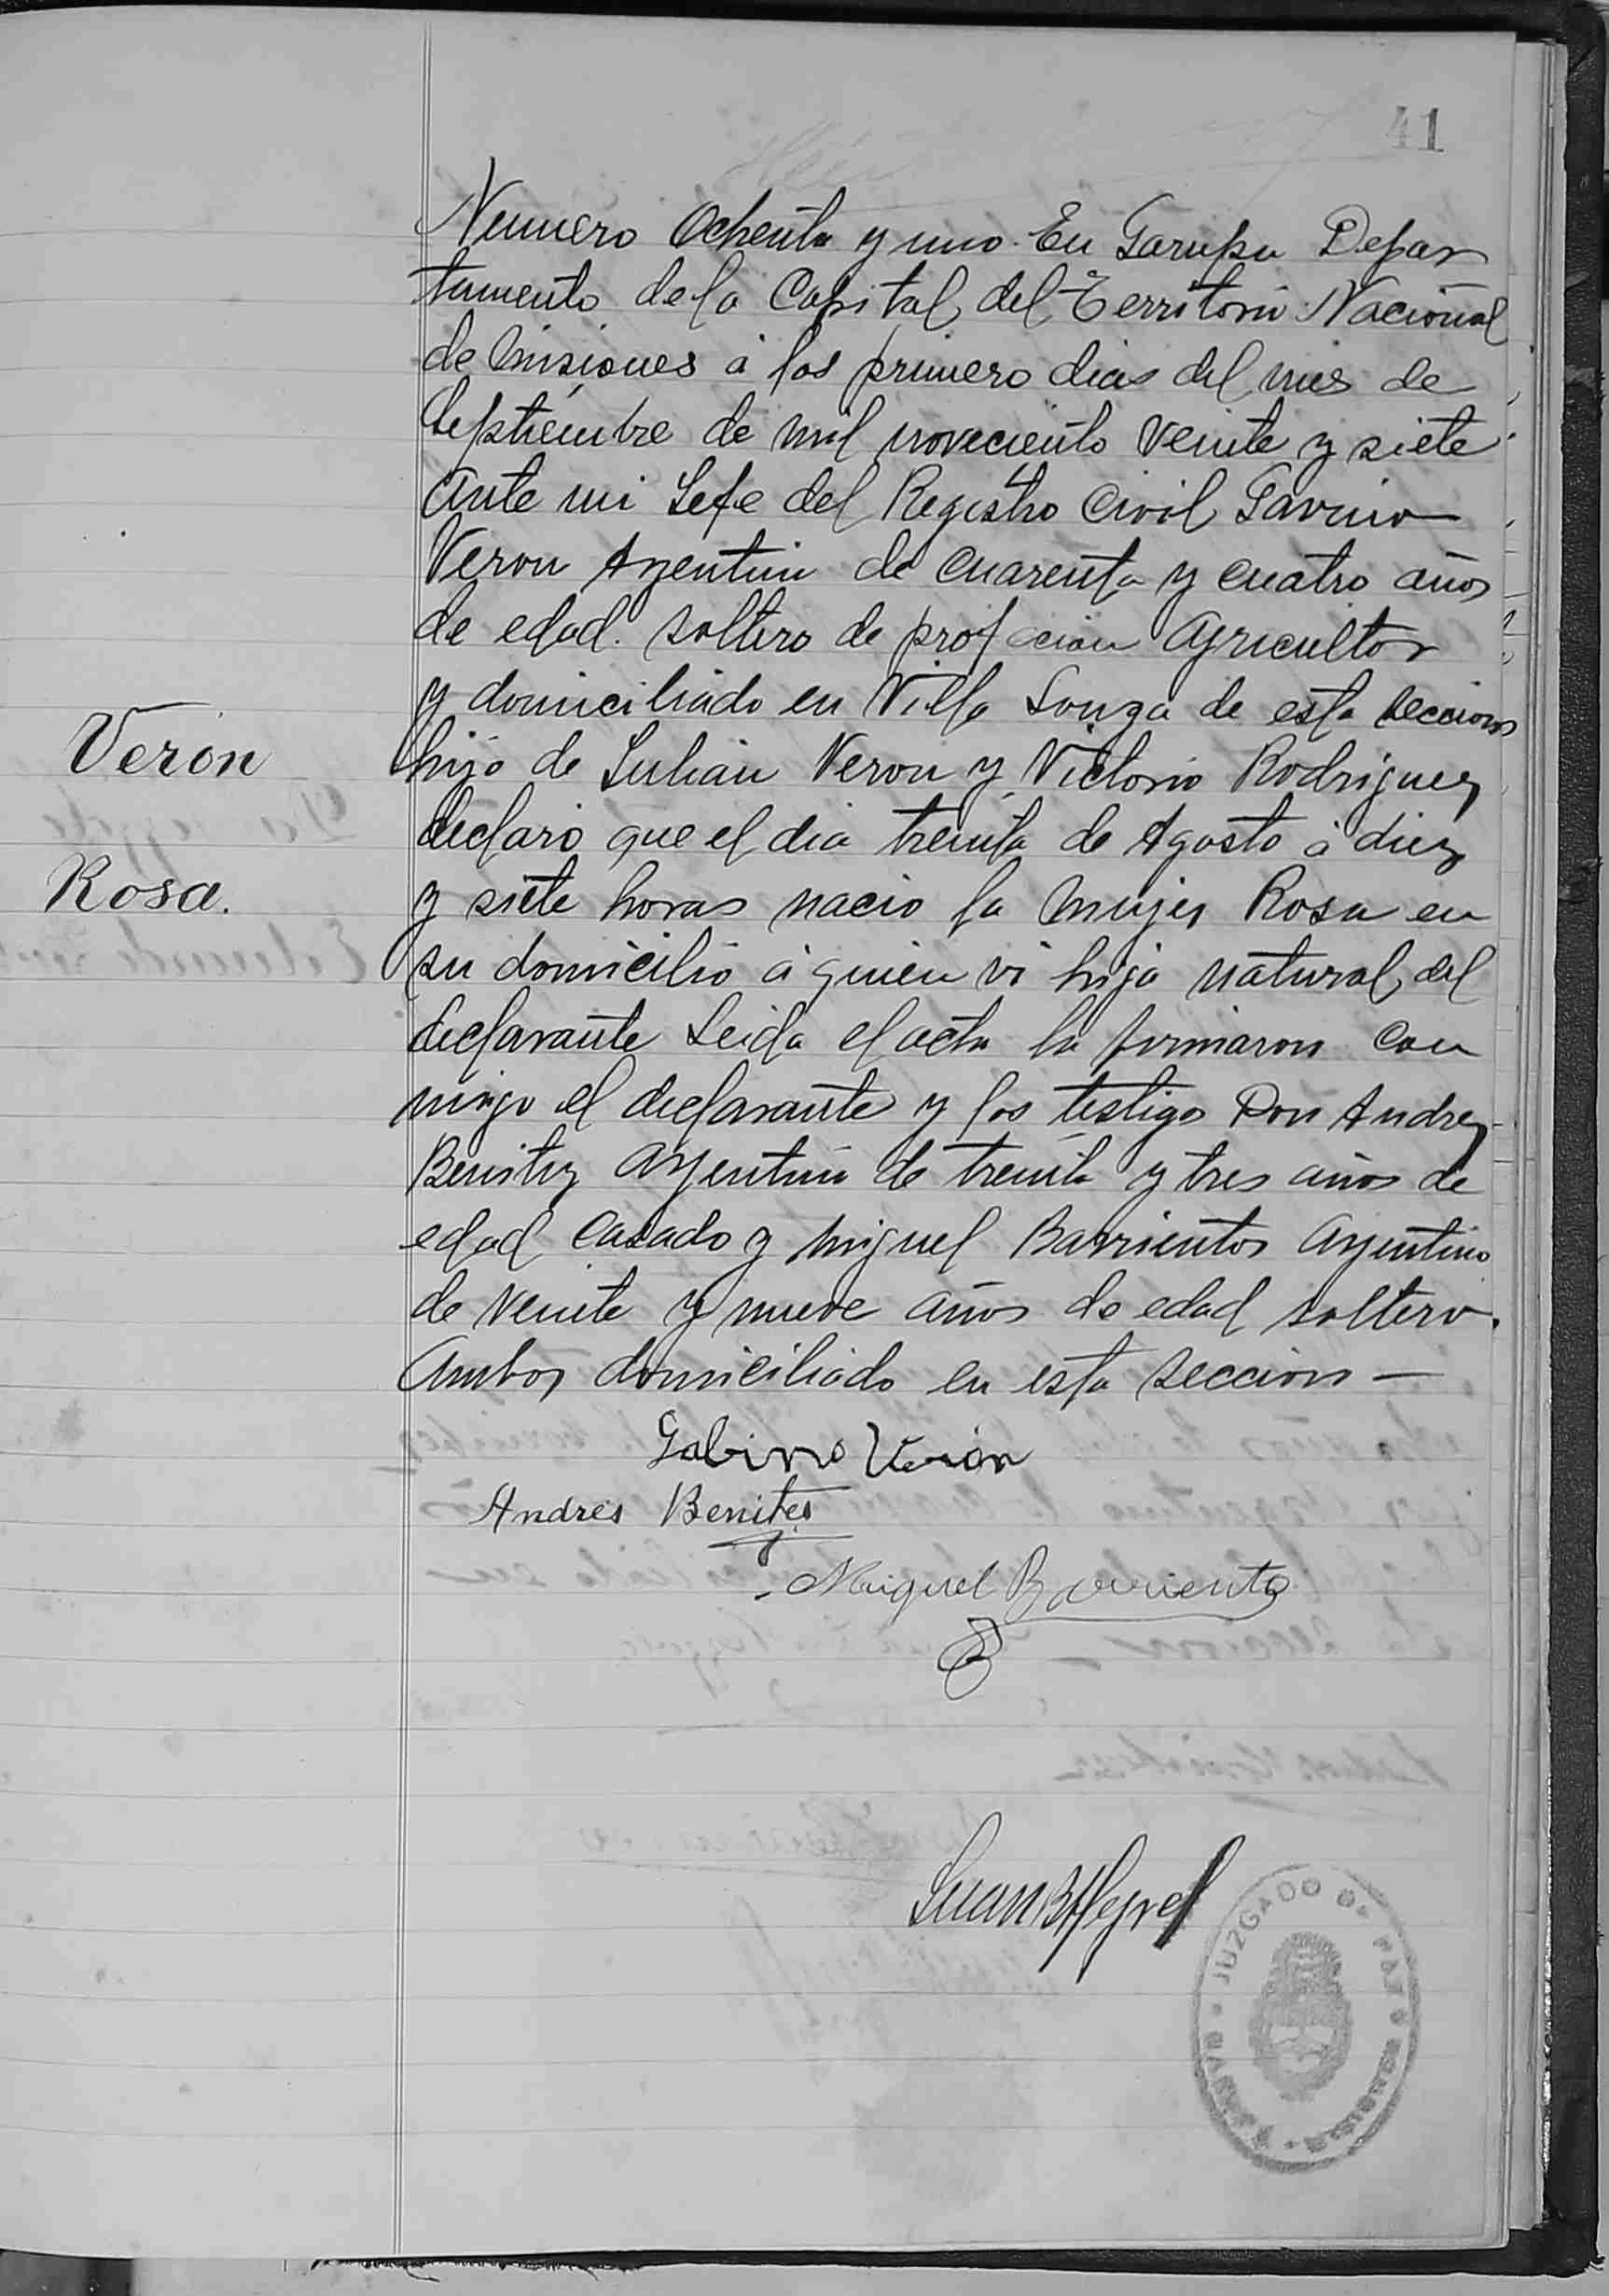 41
Numero Ochenta y uno. En Garupa Depar
tamento de la Capital del Territorio Nacional
de Misiones á los primero dias del mes de
Septiembre de mil noveciento veinte y siete
Ante mi Jefe del Registro Civil Gavino
Veron Argentin de cuarenta y cuatro años
de edad. soltero de profecion Agricultor
y domiciliado en Villa Longa de esta seccion
hijo de Julian Veron y Victorio Rodriguez
declaró que el dia treinta de Agosto á diez
y siete horas nacio la mujer Rosa en
su domicilio á quien vi hija natural del
declarante Leida el acta la firmaron con
migo el declarante y los testigo Don Andrez
Benitez Argentin de treinta y tres años de
edad casado y Miguel Barrientos Argentino
de veinte y nueve años de edad soltero.
Ambos domiciliado en esta seccion —
Veron
Rosa.
Gabino Verón
Andrés Benites
Miguel Barriento
Juan B
JUZGADO DE PAZ
MISIONES